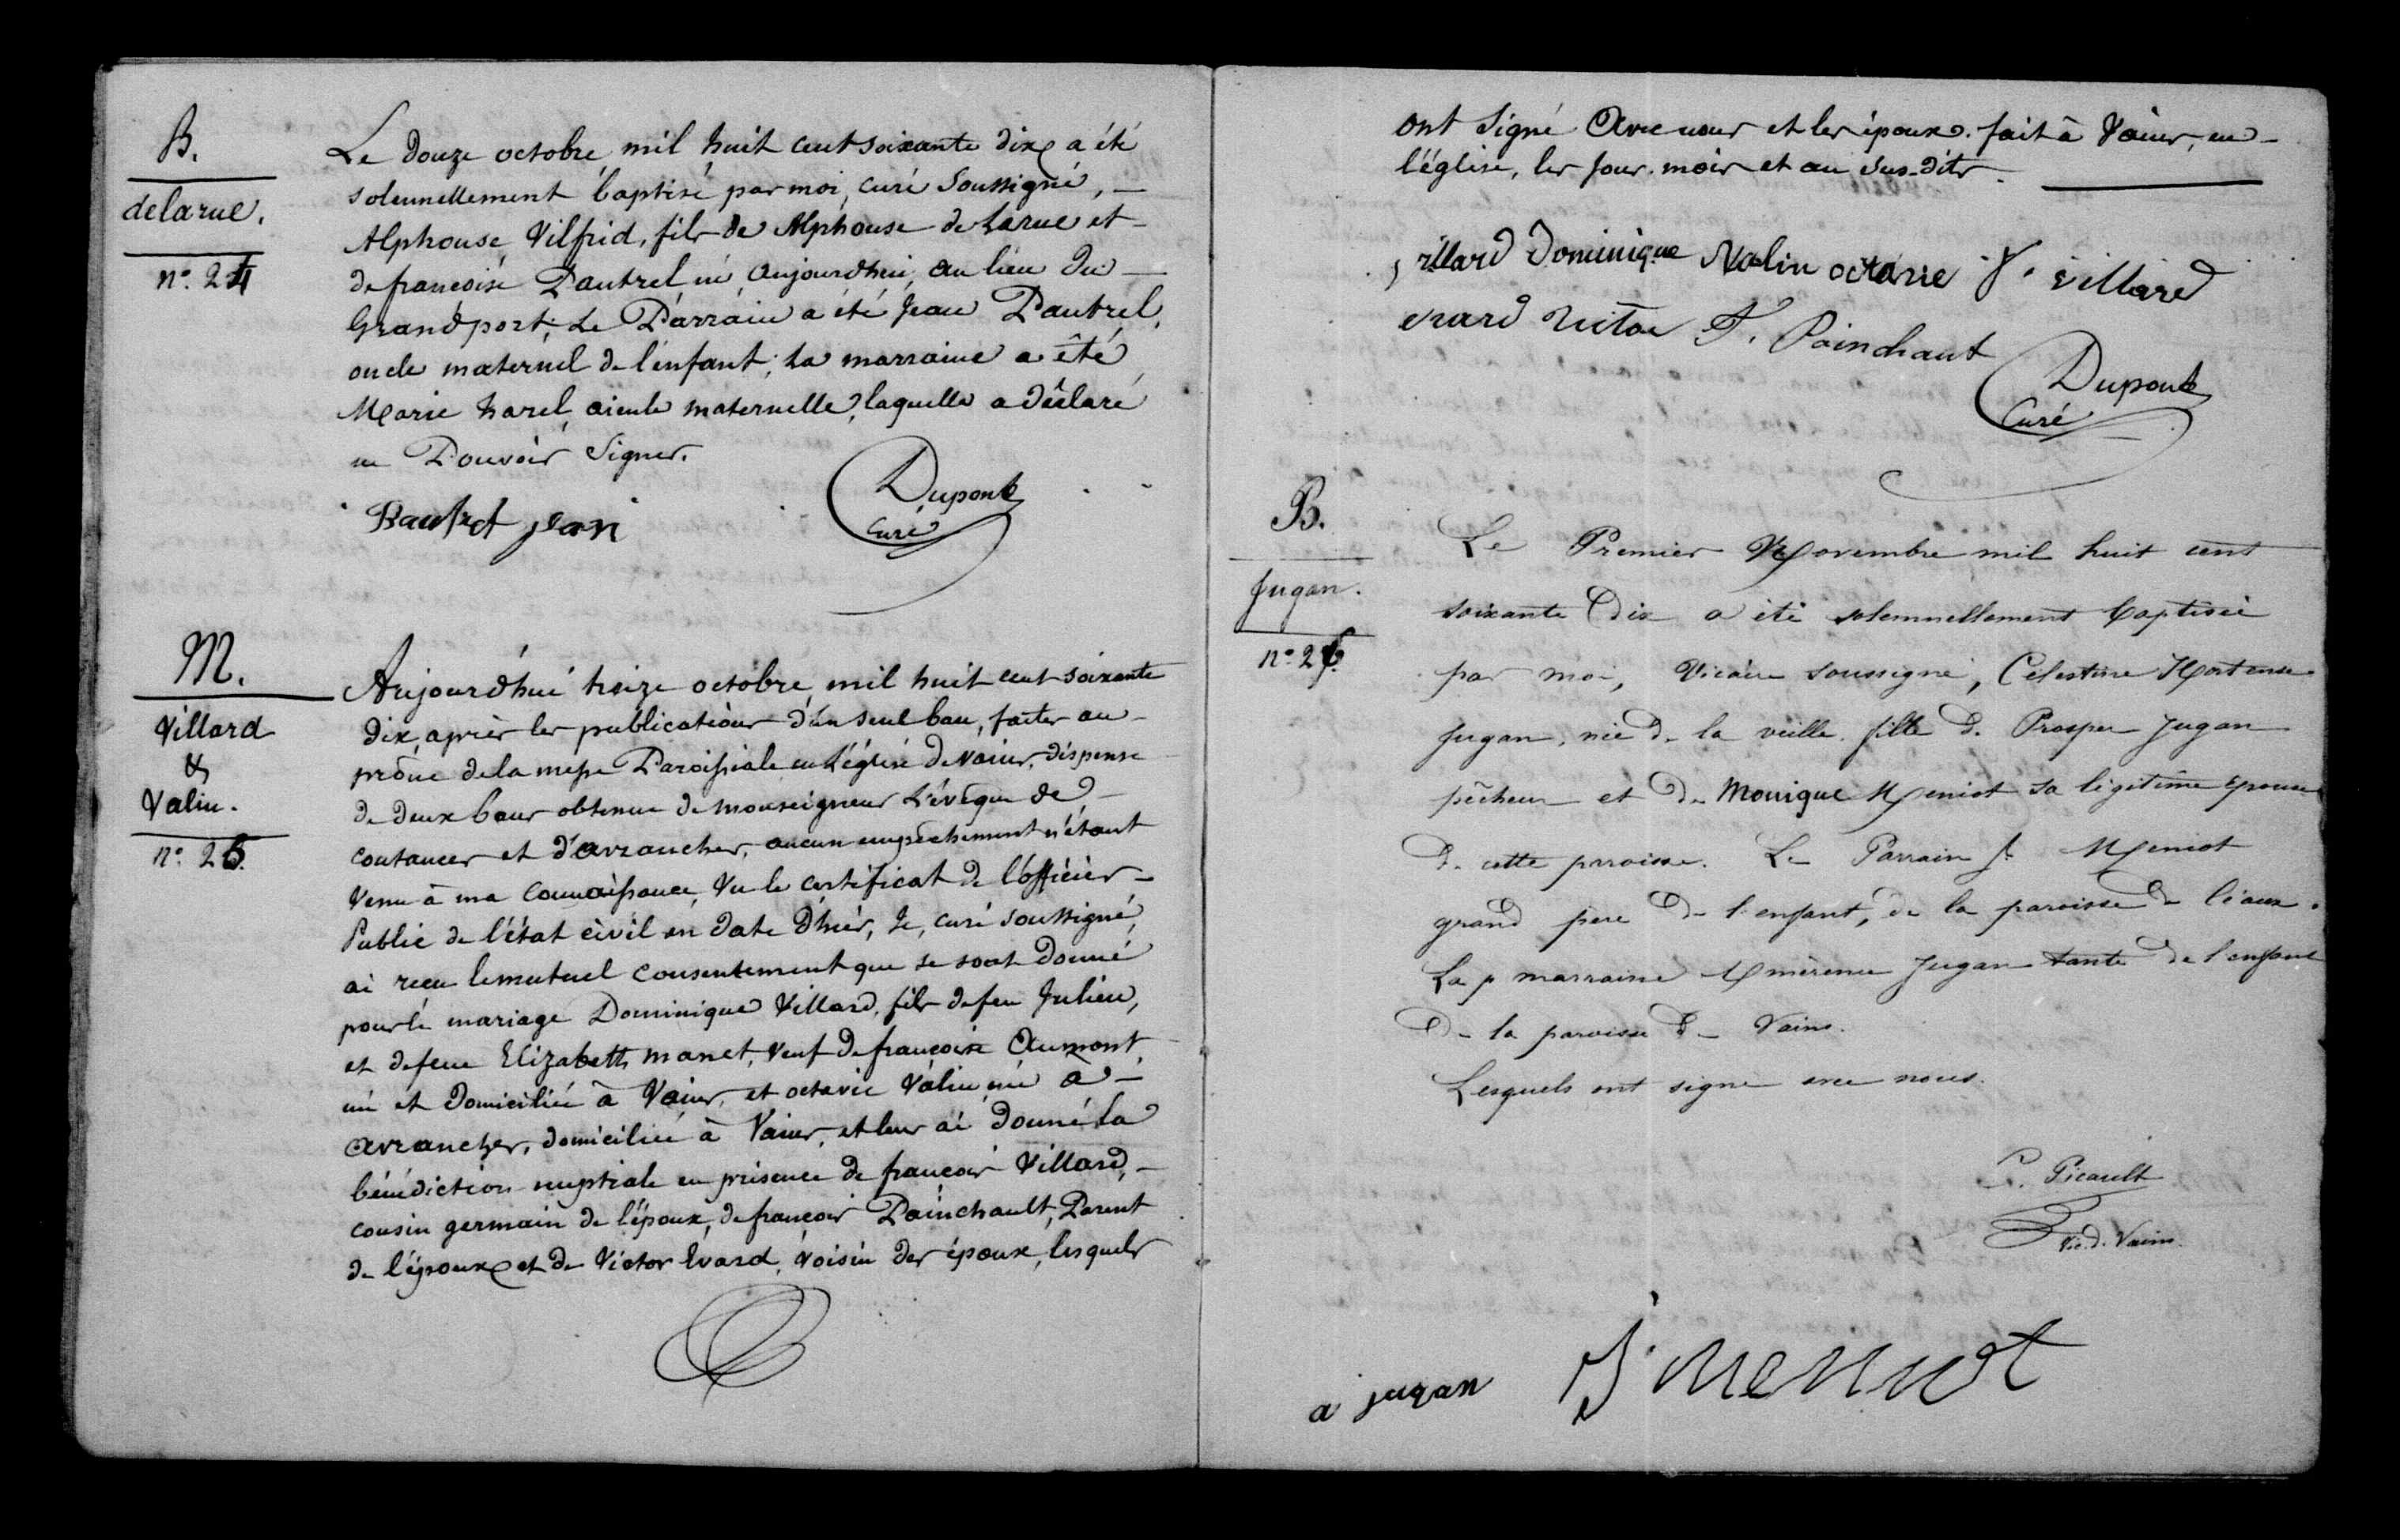 B.
delarue.
n° 24
Le Douze octobre mil huit cent soixante dix a été
solennellement baptisé par moi, curé soussigné, —
Alphonse Vilfrid, fils de Alphonse de Larue et —
de françoise Pautrel né aujourd'hui au lieu du —
Grand port; Le Parrain a été Jean Pautrel,
oncle maternel de l'enfant; La marraine a été
Marie harel, aieule maternelle, laquelle a déclaré
ne Pouvoir Signer.
Pautrel jean
Dupont
Curé
M.
Villard
&
Valin.
n° 25.
Aujourd'hui treize octobre mil huit cent soixante
dix, après les publications d'un seul ban, faites au —
prône de la messe Paroissiale en L'église de vains, dispense
de deux bans obtenue de monseigneur L'évêque de —
coutances et d'avranches, aucun empêchement n'étant
venu à ma connaissance, Vu le certificat de l'officier —
Public de l'état civil en date d'hier, Je, curé soussigné,
ai reçu le mutuel consentement que se sont donné
pour le mariage Dominique Villard, fils de feu Julien,
et de feue Elizabeth manet, veuf de françoise Aumont,
né et domicilié à Vains, et octavie Valin née à —
avranches, domiciliée à Vains, et leur ai donné la
bénédiction nuptiale en présence de françois Villard, —
cousin germain de l'époux, de françois Painchault, Parent
de l'époux et de Victor Evard, voisin des époux, lesquels
ont signé Avec nous et les époux. fait à Vains, en —
l'église, les jour. mois et an sus-dits.
villard Dominique Valin octavie f. villard
evard victor F. Poinchaut
Dupont
Curé
B.
Jugan.
n° 26.
Le Premier Novembre mil huit cent
soixante Dix a été solemnellement baptisée
par moi, Vicaire soussigné, Célestine Hortense
Jugan, née de la veille. fille de Prosper Jugan
pêcheur et de Monique Meniot sa légitime épouse
de cette paroisse. Le Parrain Meniot
grand pere de l'enfant, de la paroisse de
La p marraine Jugan tante de l'enfant
de la paroisse de Vains.
Lesquels ont signé avec nous.
Picault
Vic. d. Vains.
a jugan